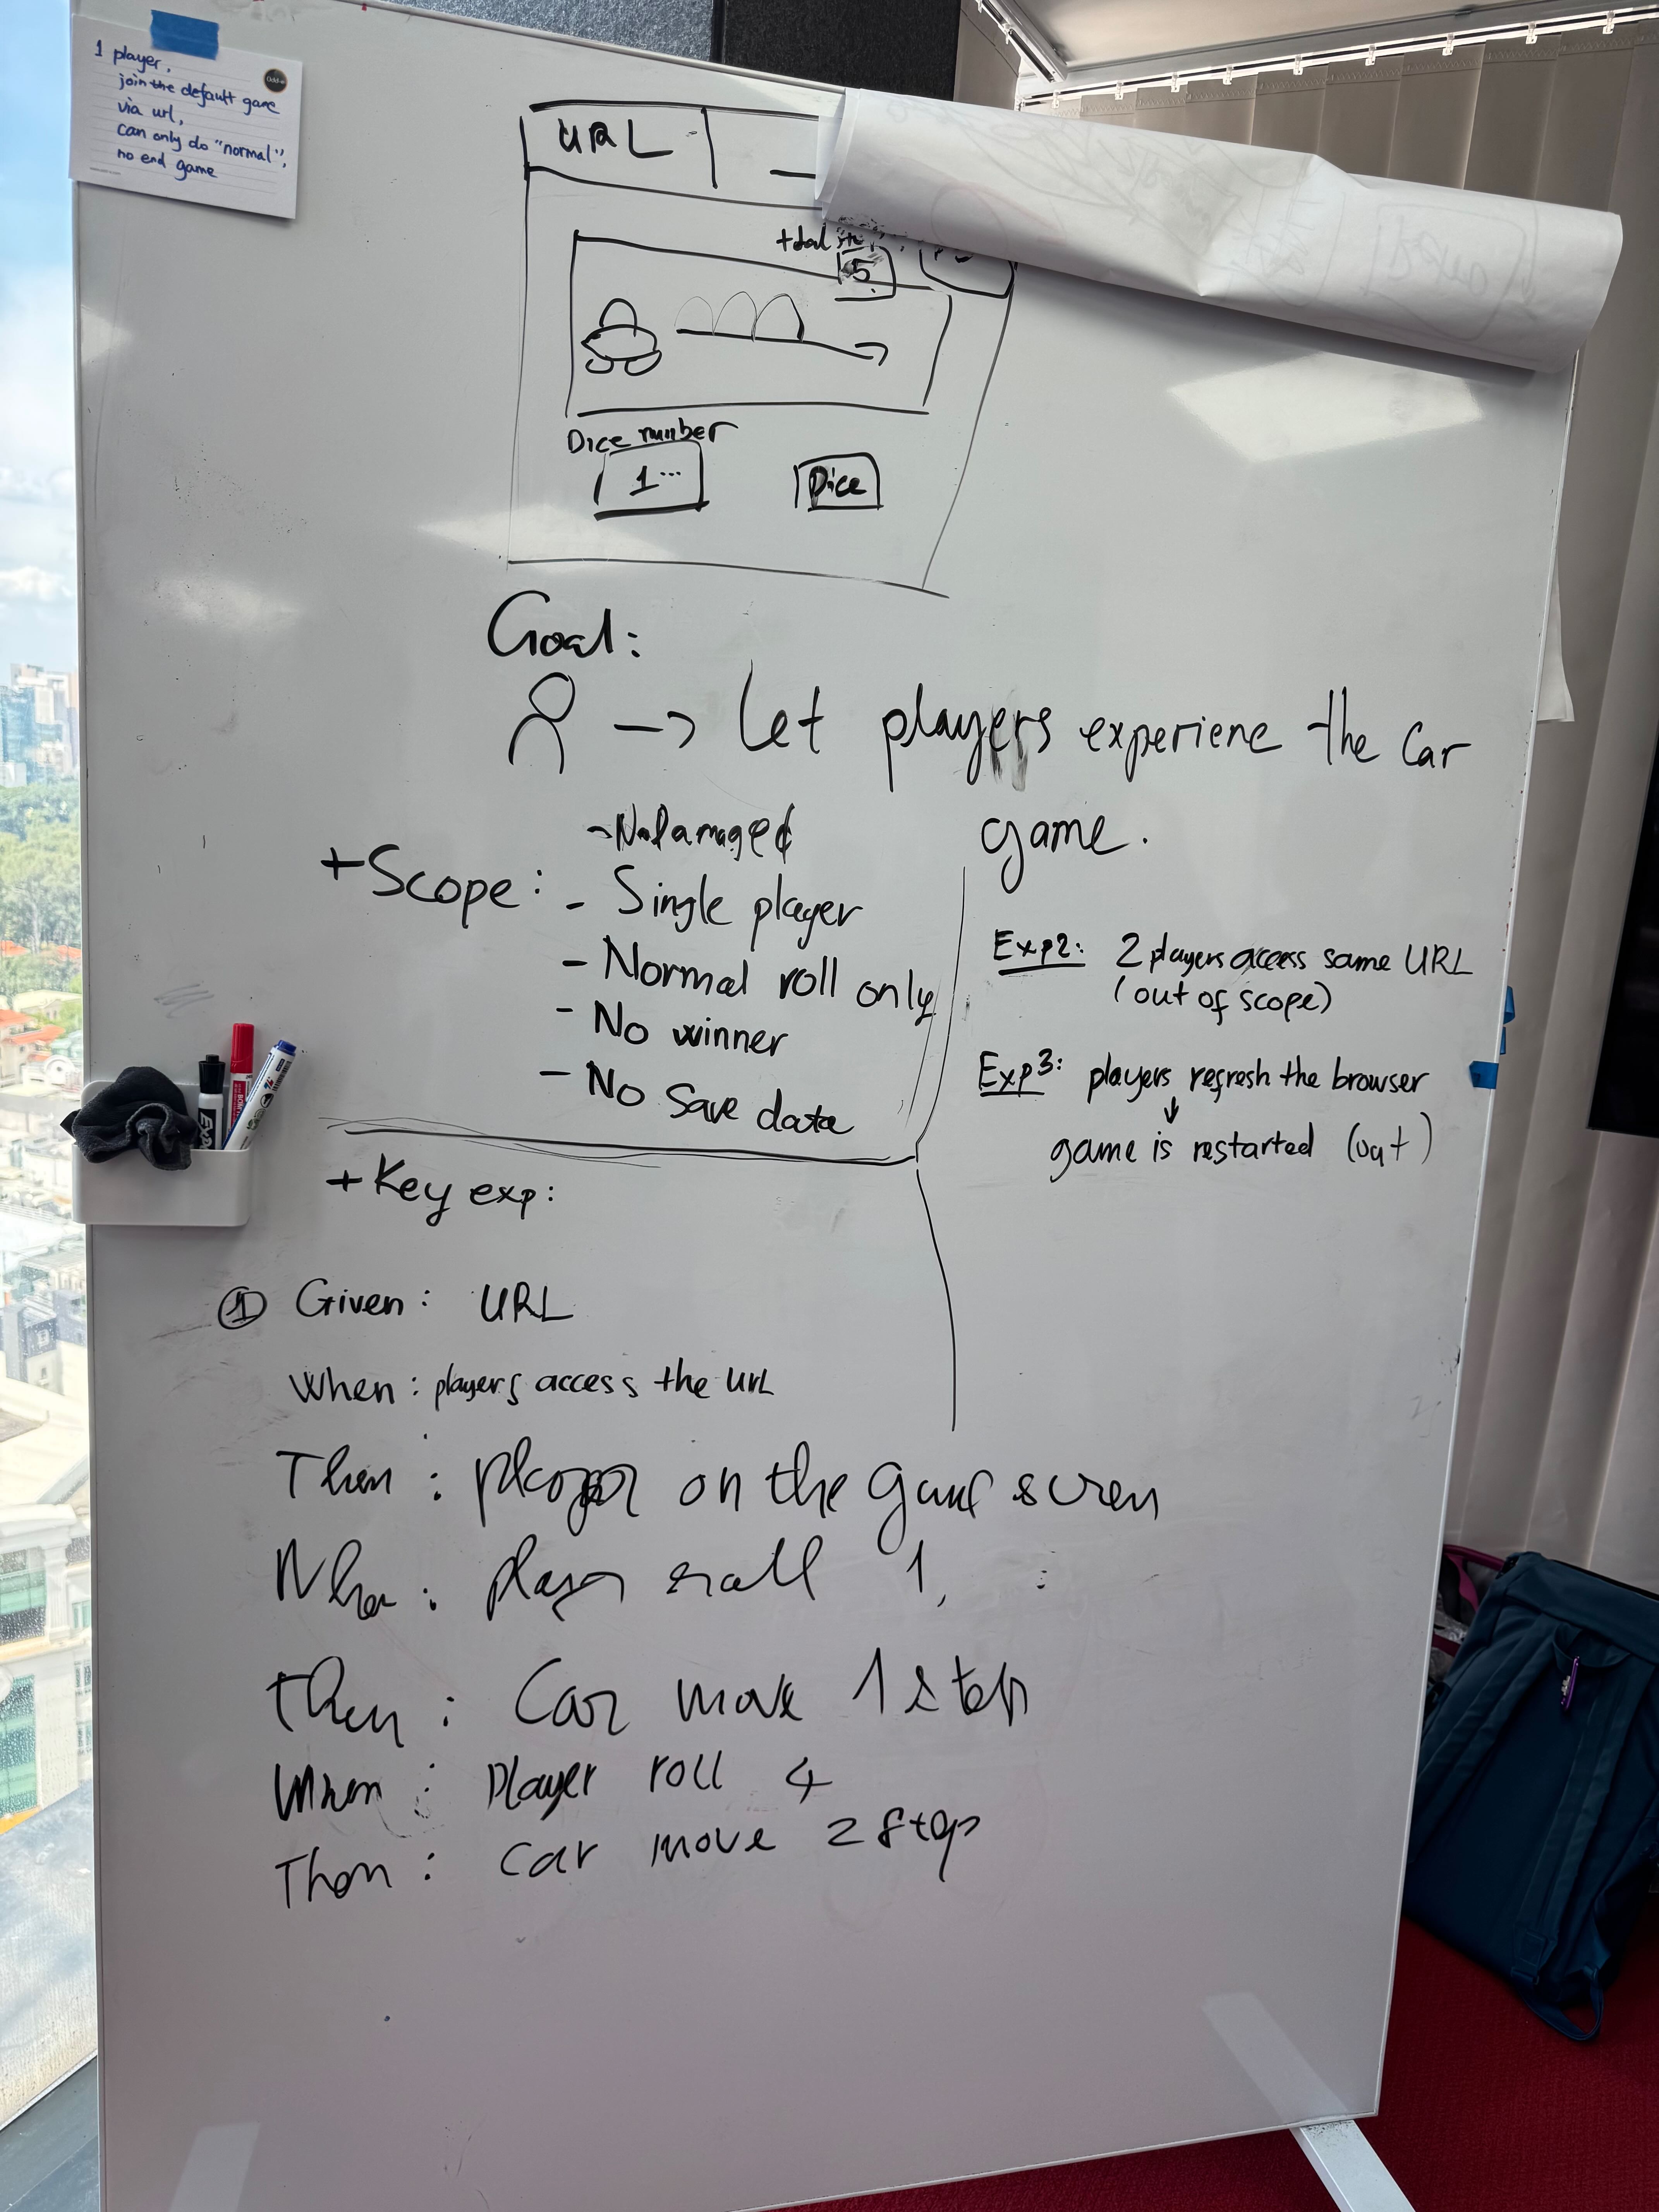 1 player,
join the default game
via url,
can only do "normal",
no end game
Odd-e
URL
total
5
Dice number
1...
Dice
Goal:
-> Let players experiene the Car
game.
+Scope:
- No Damaged
- Single player
- Normal roll only
- No winner
- No Save data
Exp2: 2 players access same URL
(out of scope)
Exp3: players refresh the browser
↓
game is restarted (out)
+Key exp:
① Given: URL
When: players access the URL
Then: player on the game screen
When: player 1,
Then: Car move 1 step
When: Player roll 4
Then: car move 2 step